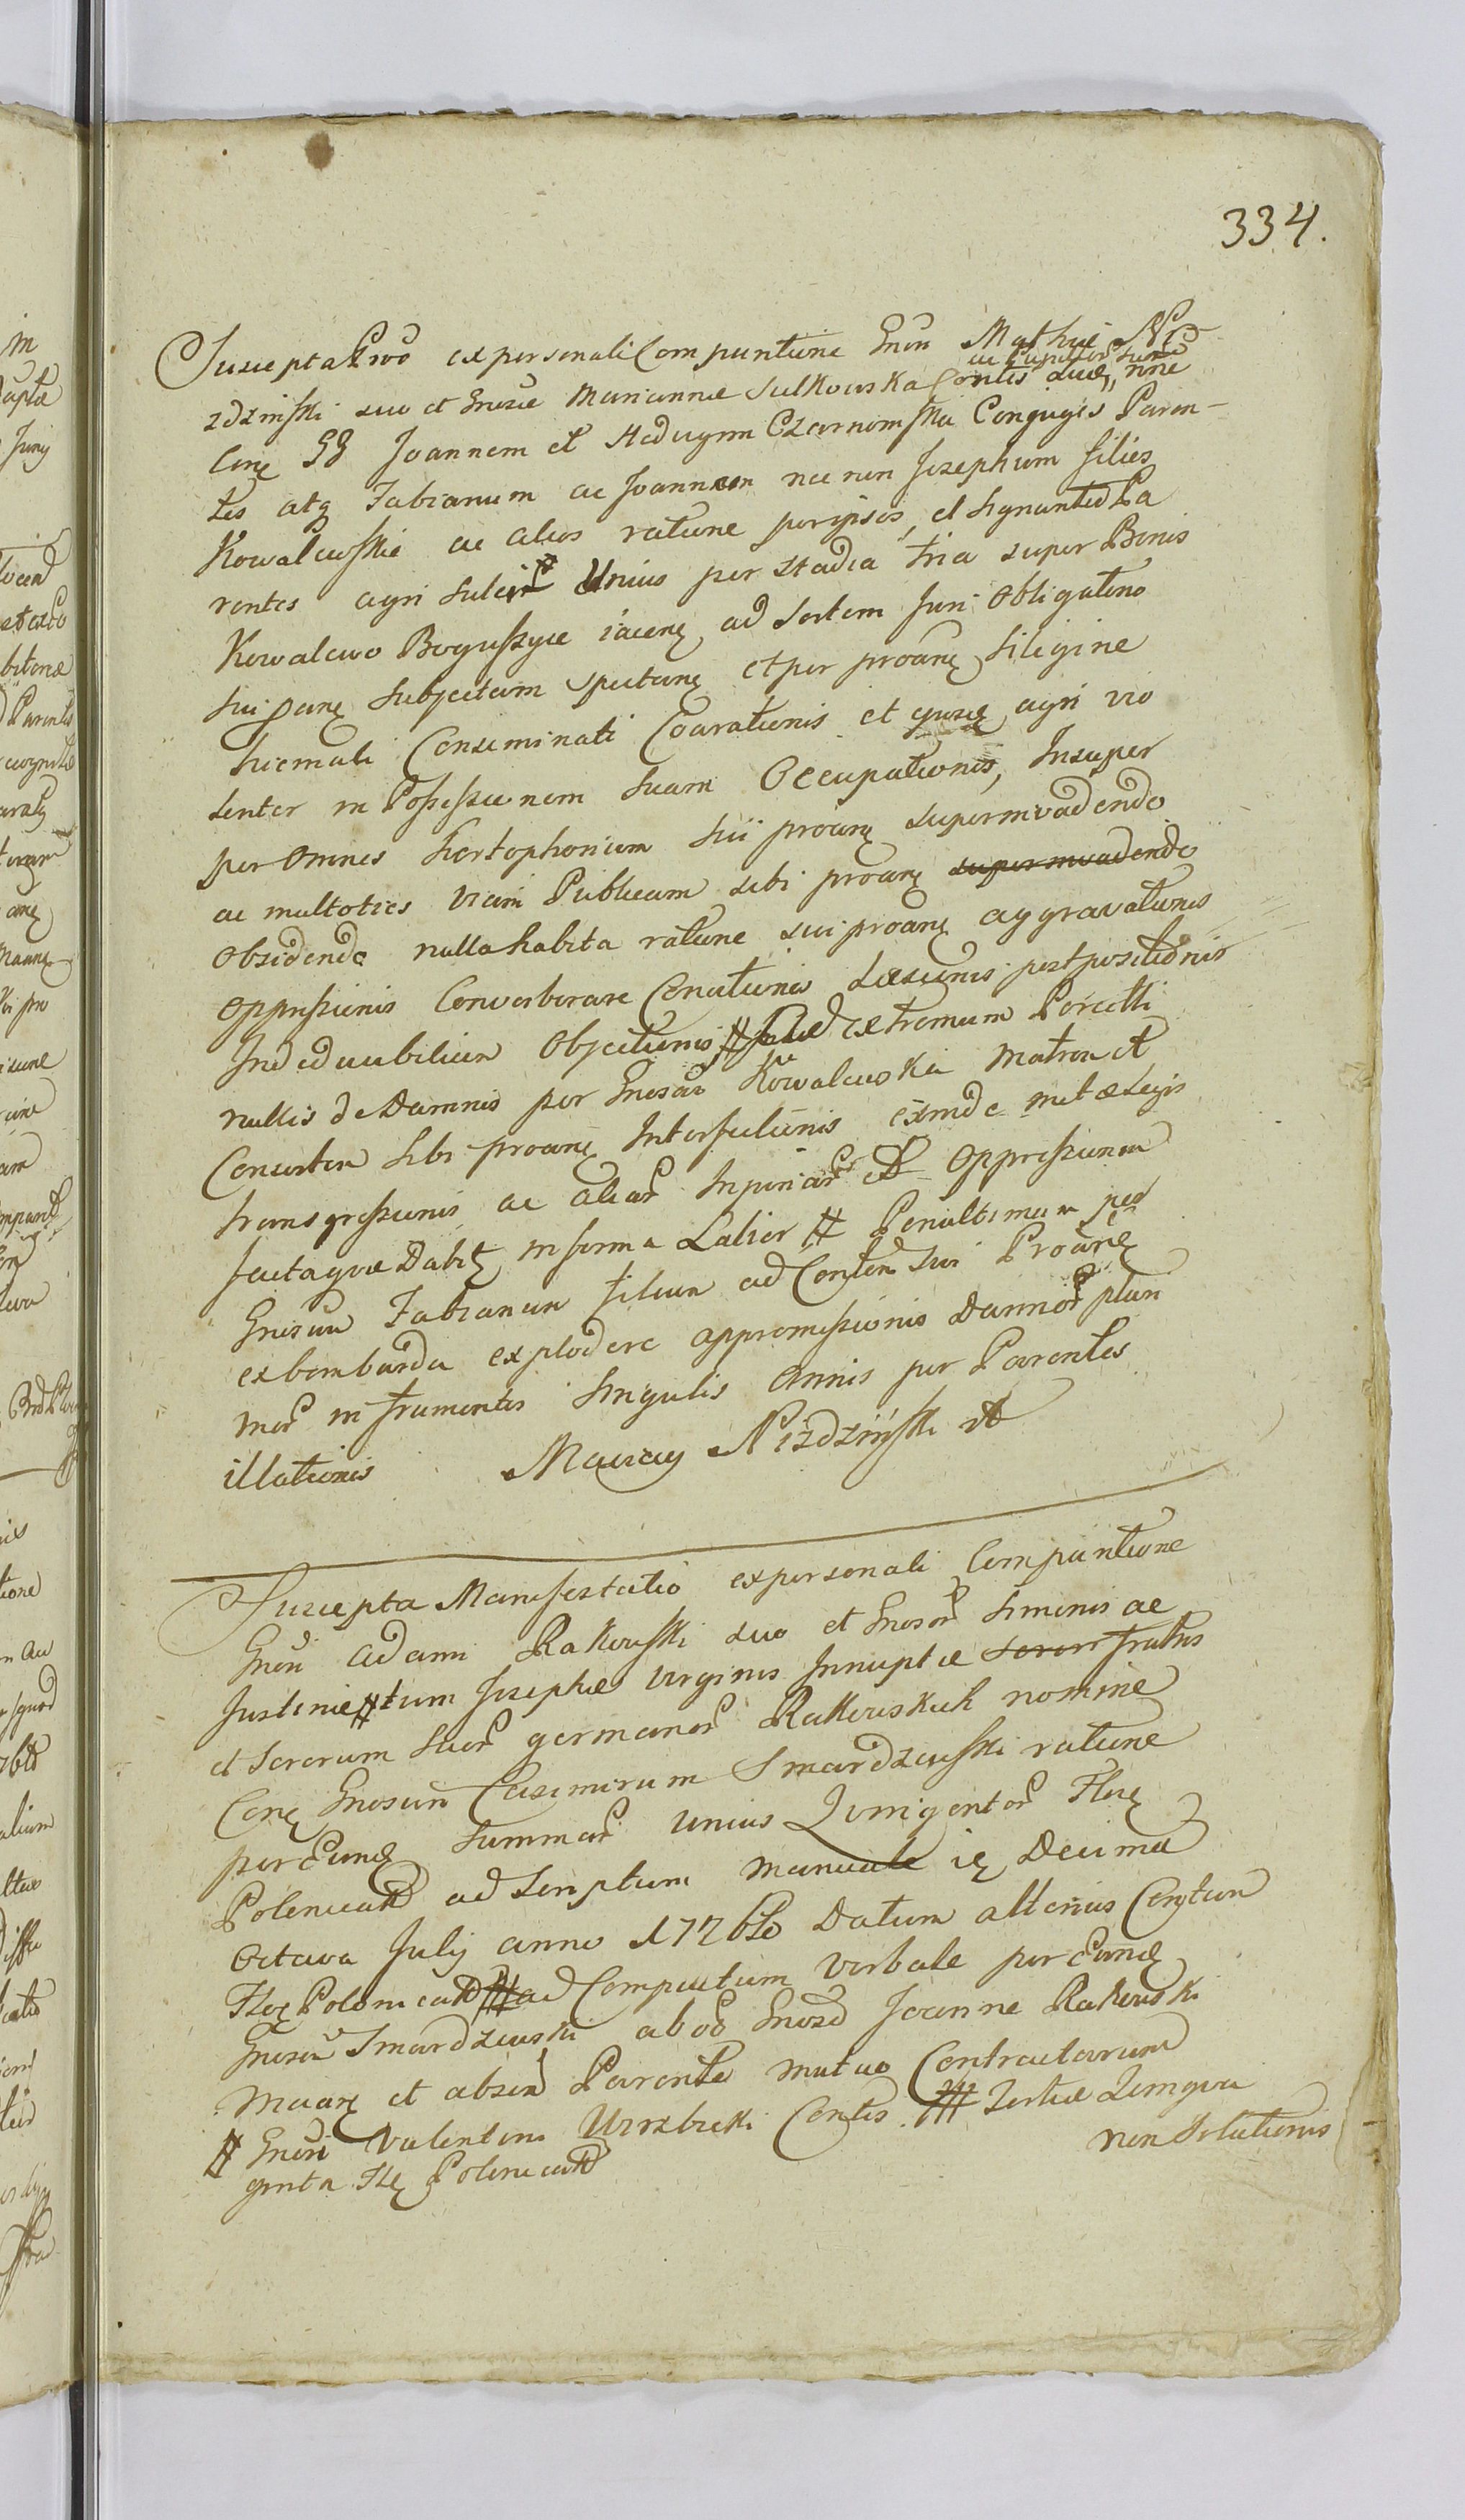 334.
Suscepta Prō ex personali Comparitione Gnēri Mathiæ Ni
zdzinski suo et Gnosæ Mariannæ Sulkowska Contis suæ, nōīne
ac Capitor suor
Conq GG Joannem et Hedvigem Czarnomska Conjuges Paren-
tes atq Fabianum ac Joannem nec non Josephum filios
Kowalewskie ac alios ratione per ipsos, et signanter Pa
rentes agri Sulci Unius per stadia tria super Bonis
Kowalewo Boguszyce iacen, ad sortem Juri Obligatorio
sui Panq Subjectam spectanq et per proanq Siligine
hiemali Conseminati Coarationis et ejusq agri vio
lenter in Possessionem suam Occupationis, Insuper
per Omnes hortophorium sui proanq superinvadendo
ac multoties viam Publicam sibi proanq superinvadendo
Obsidendo nulla habita ratione sui proanq aggravationis
Oppressionis Converberare Conationis Læsionis postpositionis
Indeduubilium Objectionis # extremum Porcelli
nullis de Damnis per Gnosam Kowalewska Matrem et
Consortem sibi proanq Interfectionis exinde metæ Legis
transgressionis ac aliar Injuriar et Oppressionum
factaque Dabit in forma Latior # Penultimum per
Gnosum Fabianum filium ad Conten sui Proanq
ex bombarda explodere appromissionis Damnor pluri
mor in frumentis singulis Annis per Parentes
illationis Maciey Nizdzinski
Suscepta Manifestatio ex personali Comparitione
Gnēri Adami Rakowski suo et Gnosor Siminis ac
Justinie # tum Josephæ Virginis Innuptæ soror fratris
et Sororum suor germanor Rakowskich nomine
Conq Gnosum Casimirum Smardzewski ratione
per Eundq Summar Unius Quingentor Flor
Polonical ad scriptum manuale ie Decima
Octava July anno 1776to Datum alterius Centum
Flor Polonical # ad Computum verbale per Eundq
Gnosum Smardzewski ab oo Gnoso Joanne Rakowski
Meanq et absen Parente mutuo Contractarum
# Gnēri Valentini Wierzbicki Contis. # Tertiæ Quingua
ginta Flq Polonical
non Solutionis